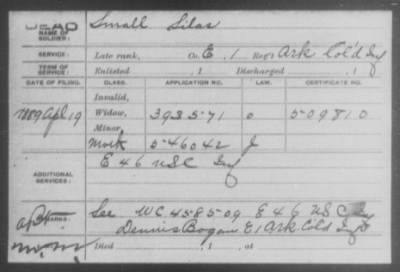 NAME OF SOLDIER: Small Silas
SERVICE: Late rank, Co. E, 1 Reg't Ark Col'd Inf
TERM OF SERVICE: Enlisted , 1 Discharged , 1
DATE OF FILING. CLASS. APPLICATION NO. LAW. CERTIFICATE NO.
Invalid,
1889 Apl 19 Widow, 393571 0 509810
Minor,
Moth 546042 J
ADDITIONAL SERVICES: E 46 USC Inf
REMARKS: See WC 458509 E 46 US C Inf
Dennis Bogan E 1 Ark. Cold Inf
Died , 1 , at